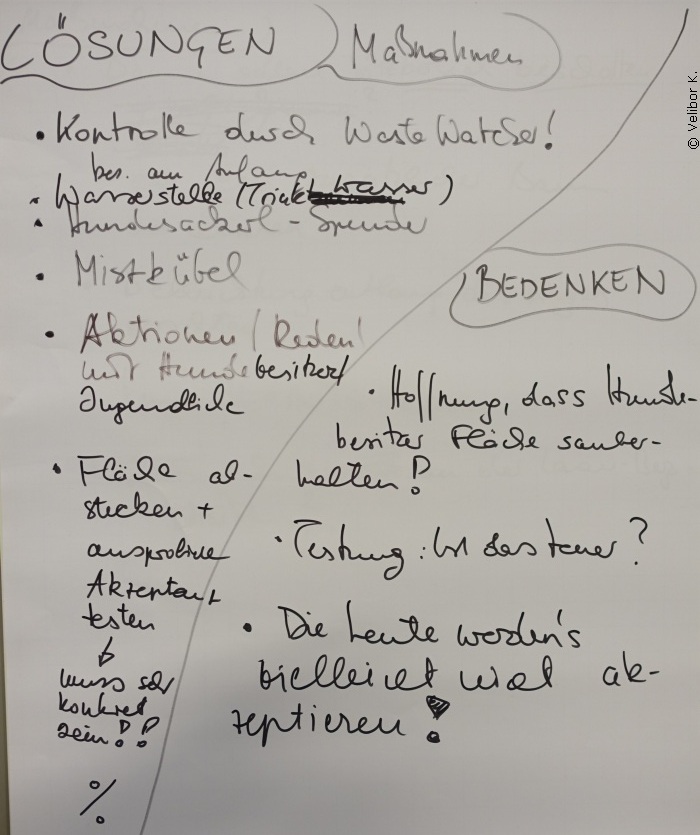 LÖSUNGEN
Maßnahmen
• Kontrolle durch Waste Watcher!
bes. am Anfang
• Wasserstelle (Trinkwasser)
• Hundesackerl - Spende
• Mistkübel
• Aktionen / Reden
mit Hundebesitzer/
Jugendliche
• Fläche ab-
stecken +
ausprobieren
Akzeptanz
testen
↓
muss sehr
konkret
sein!!
%
BEDENKEN
• Hoffnung, dass Hunde-
besitzer Fläche sauber-
halten!
• Testung: Ist das teuer?
• Die Leute werden's
vielleicht nicht ak-
zeptieren!
© Velibor K.